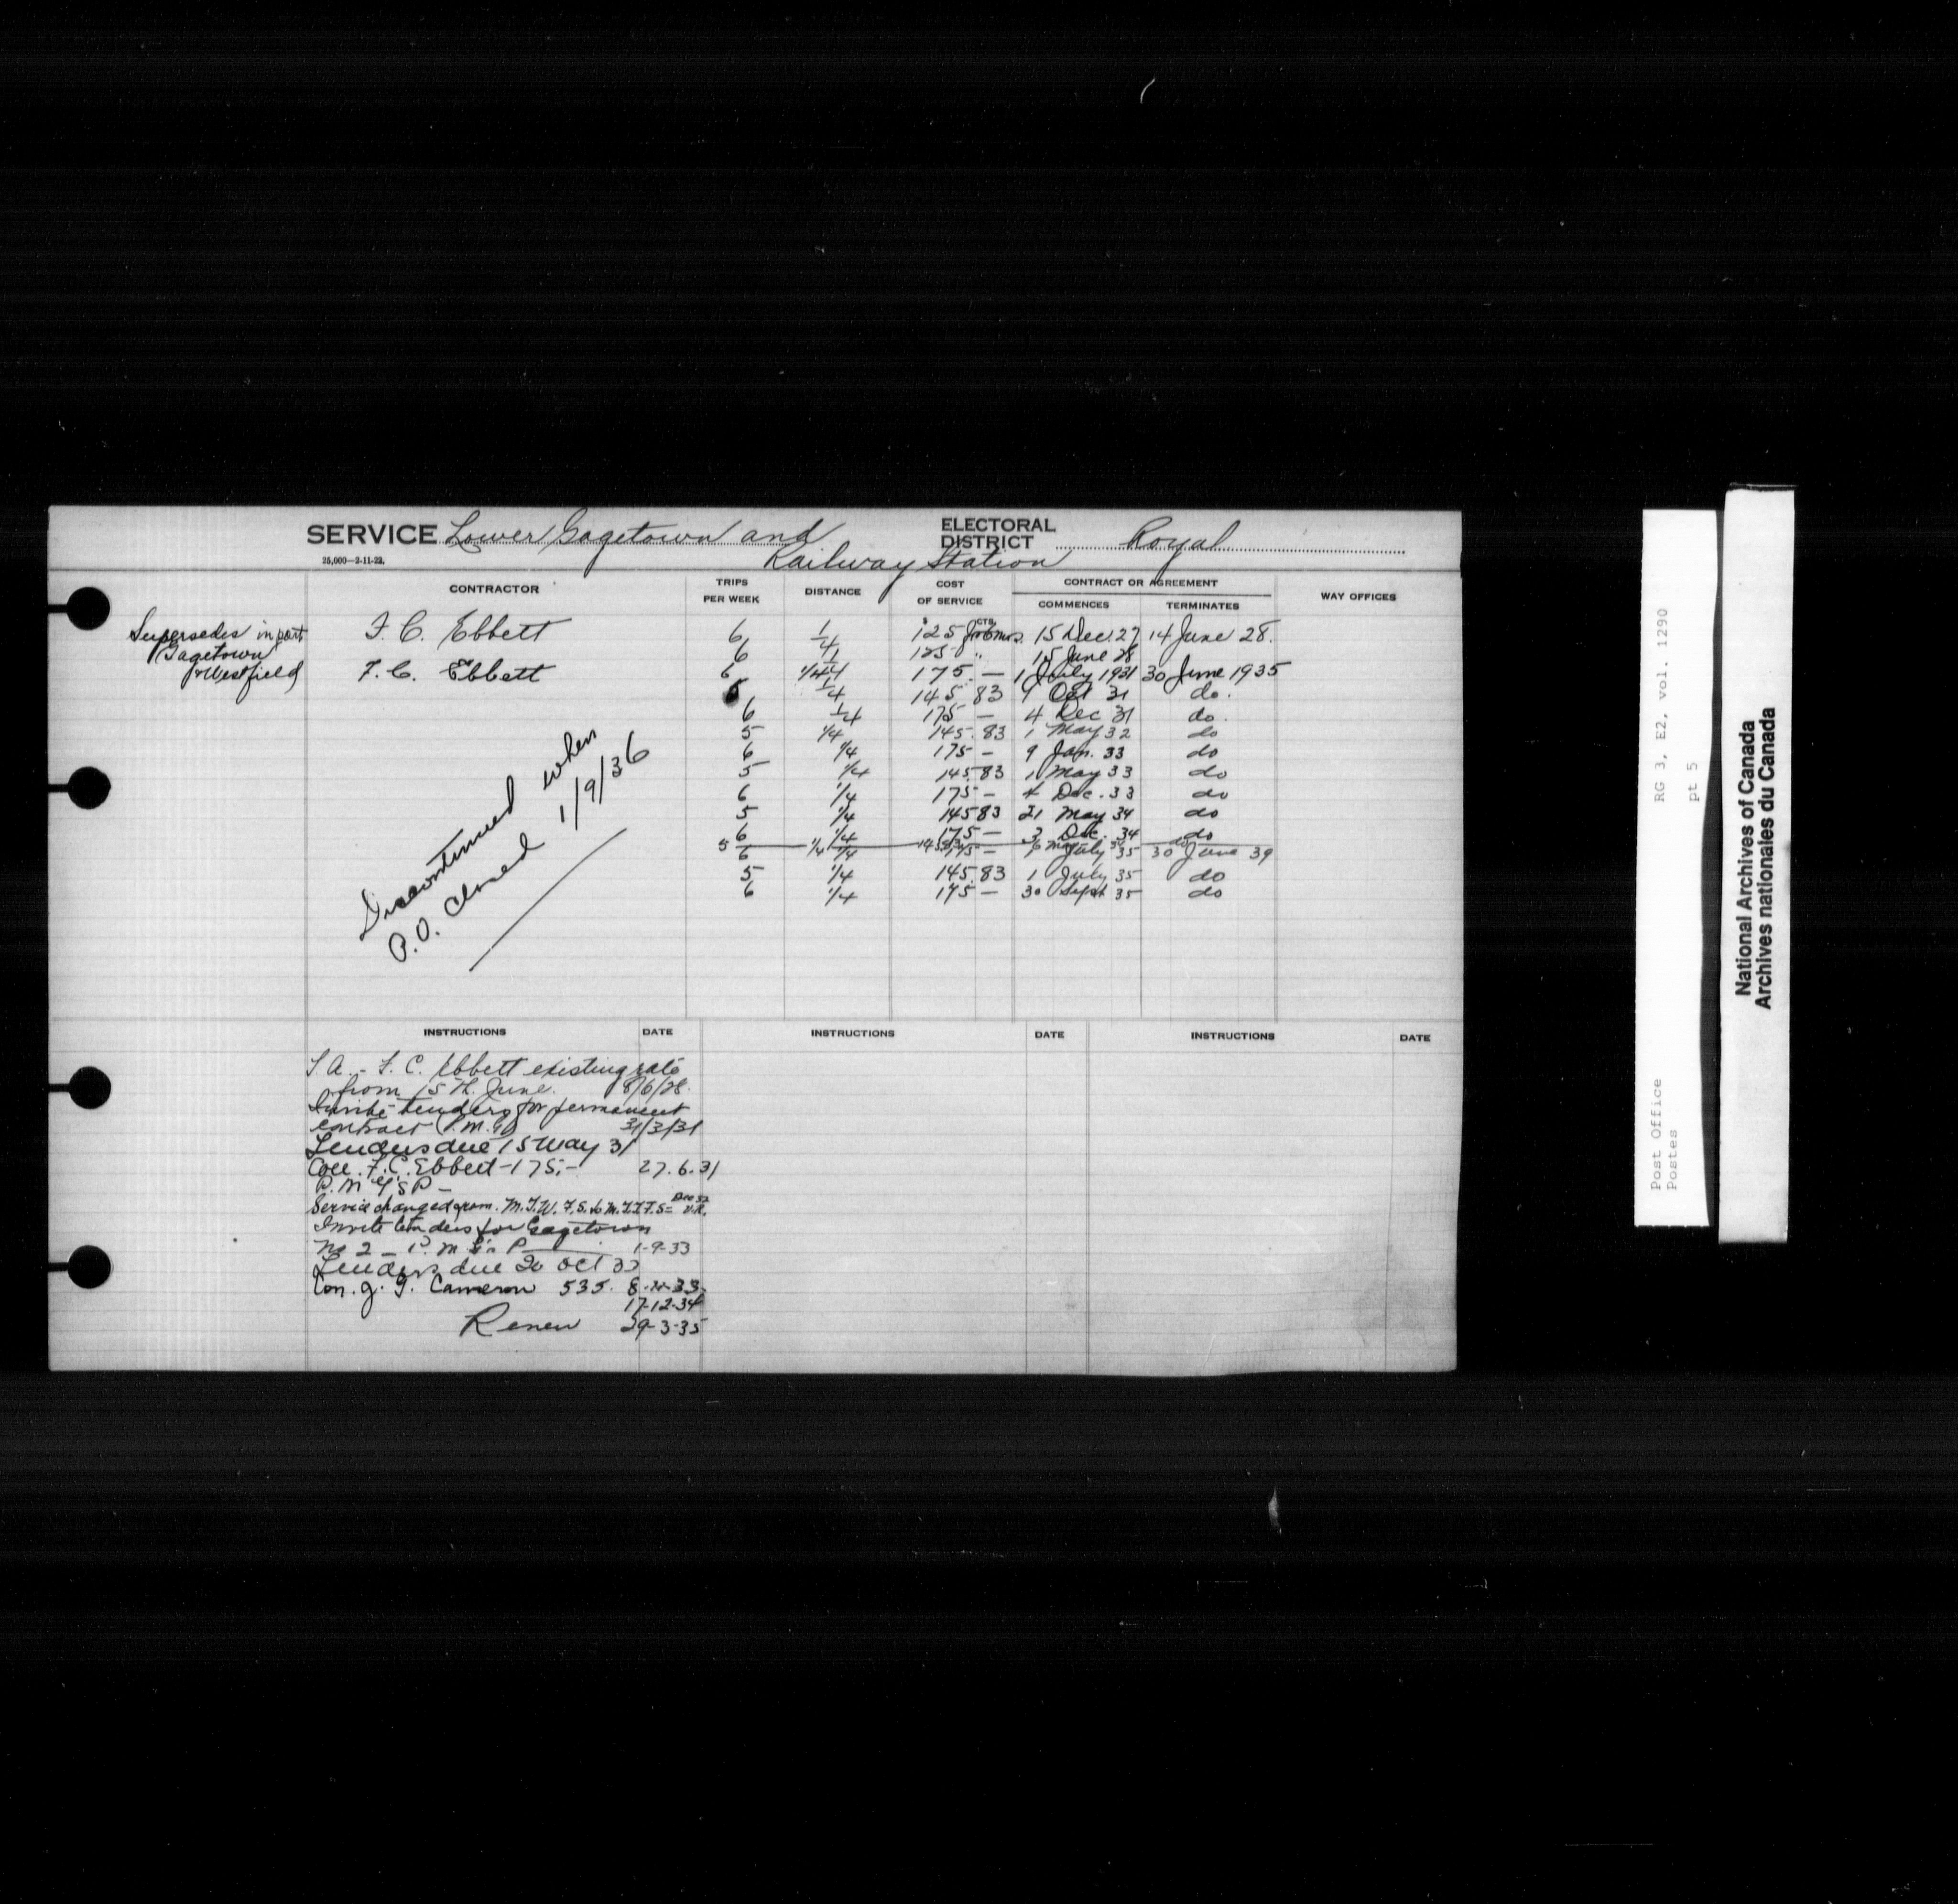 SERVICE Lower Gagetown and Railway Station
ELECTORAL DISTRICT Royal
25,000—2-11-22.
CONTRACTOR TRIPS PER WEEK DISTANCE COST OF SERVICE CONTRACT OR AGREEMENT WAY OFFICES
COMMENCES TERMINATES
Supersedes in part
Gagetown
& Westfield
$ CTS.
F. C. Ebbett 6 1/4 125 for 6 mos. 15 Dec. 27 14 June 28.
6 1/4 125 " 15 June 28
F. C. Ebbett 6 1/4 175 — 1 July 1931 30 June 1935
5 1/4 145 83 Oct 31 do.
6 1/4 175 — 4 Dec 31 do.
5 1/4 145.83 1 May 32 do
6 1/4 175 — 9 Jan. 33 do
5 1/4 145.83 1 May 33 do
6 1/4 175 — 4 Dec. 33 do
5 1/4 145 83 21 May 34 do
6 1/4 175 — 3 Dec. 34 do
5 1/4 145 83 May do
6 1/4 175 — July 35 30 June 39
5 1/4 145.83 1 July 35 do
6 1/4 175 — 30 Sept 35 do
Discontinued when
P.O. closed 1/9/36
INSTRUCTIONS DATE INSTRUCTIONS DATE INSTRUCTIONS DATE
T A. - F. C. Ebbett existing rate
from 15th. June. 8/6/28.
Invite tenders for permanent
contract P.M.G. 31/3/31
Tenders due 15 May 31
F. C. Ebbett - 175.- 27.6.31
P. M G's P -
Service changed from. M.T.W.F.S. to M.T.T.F.S =
Invite tenders for Gagetown
No 2 _ P. M. G's P 1-9-33
Tenders due 20 Oct 33
Con. J. G. Cameron 535.
17-12-34
Renew 29-3-35
RG 3, E2, vol. 1290
pt 5
Post Office
Postes
National Archives of Canada
Archives nationales du Canada